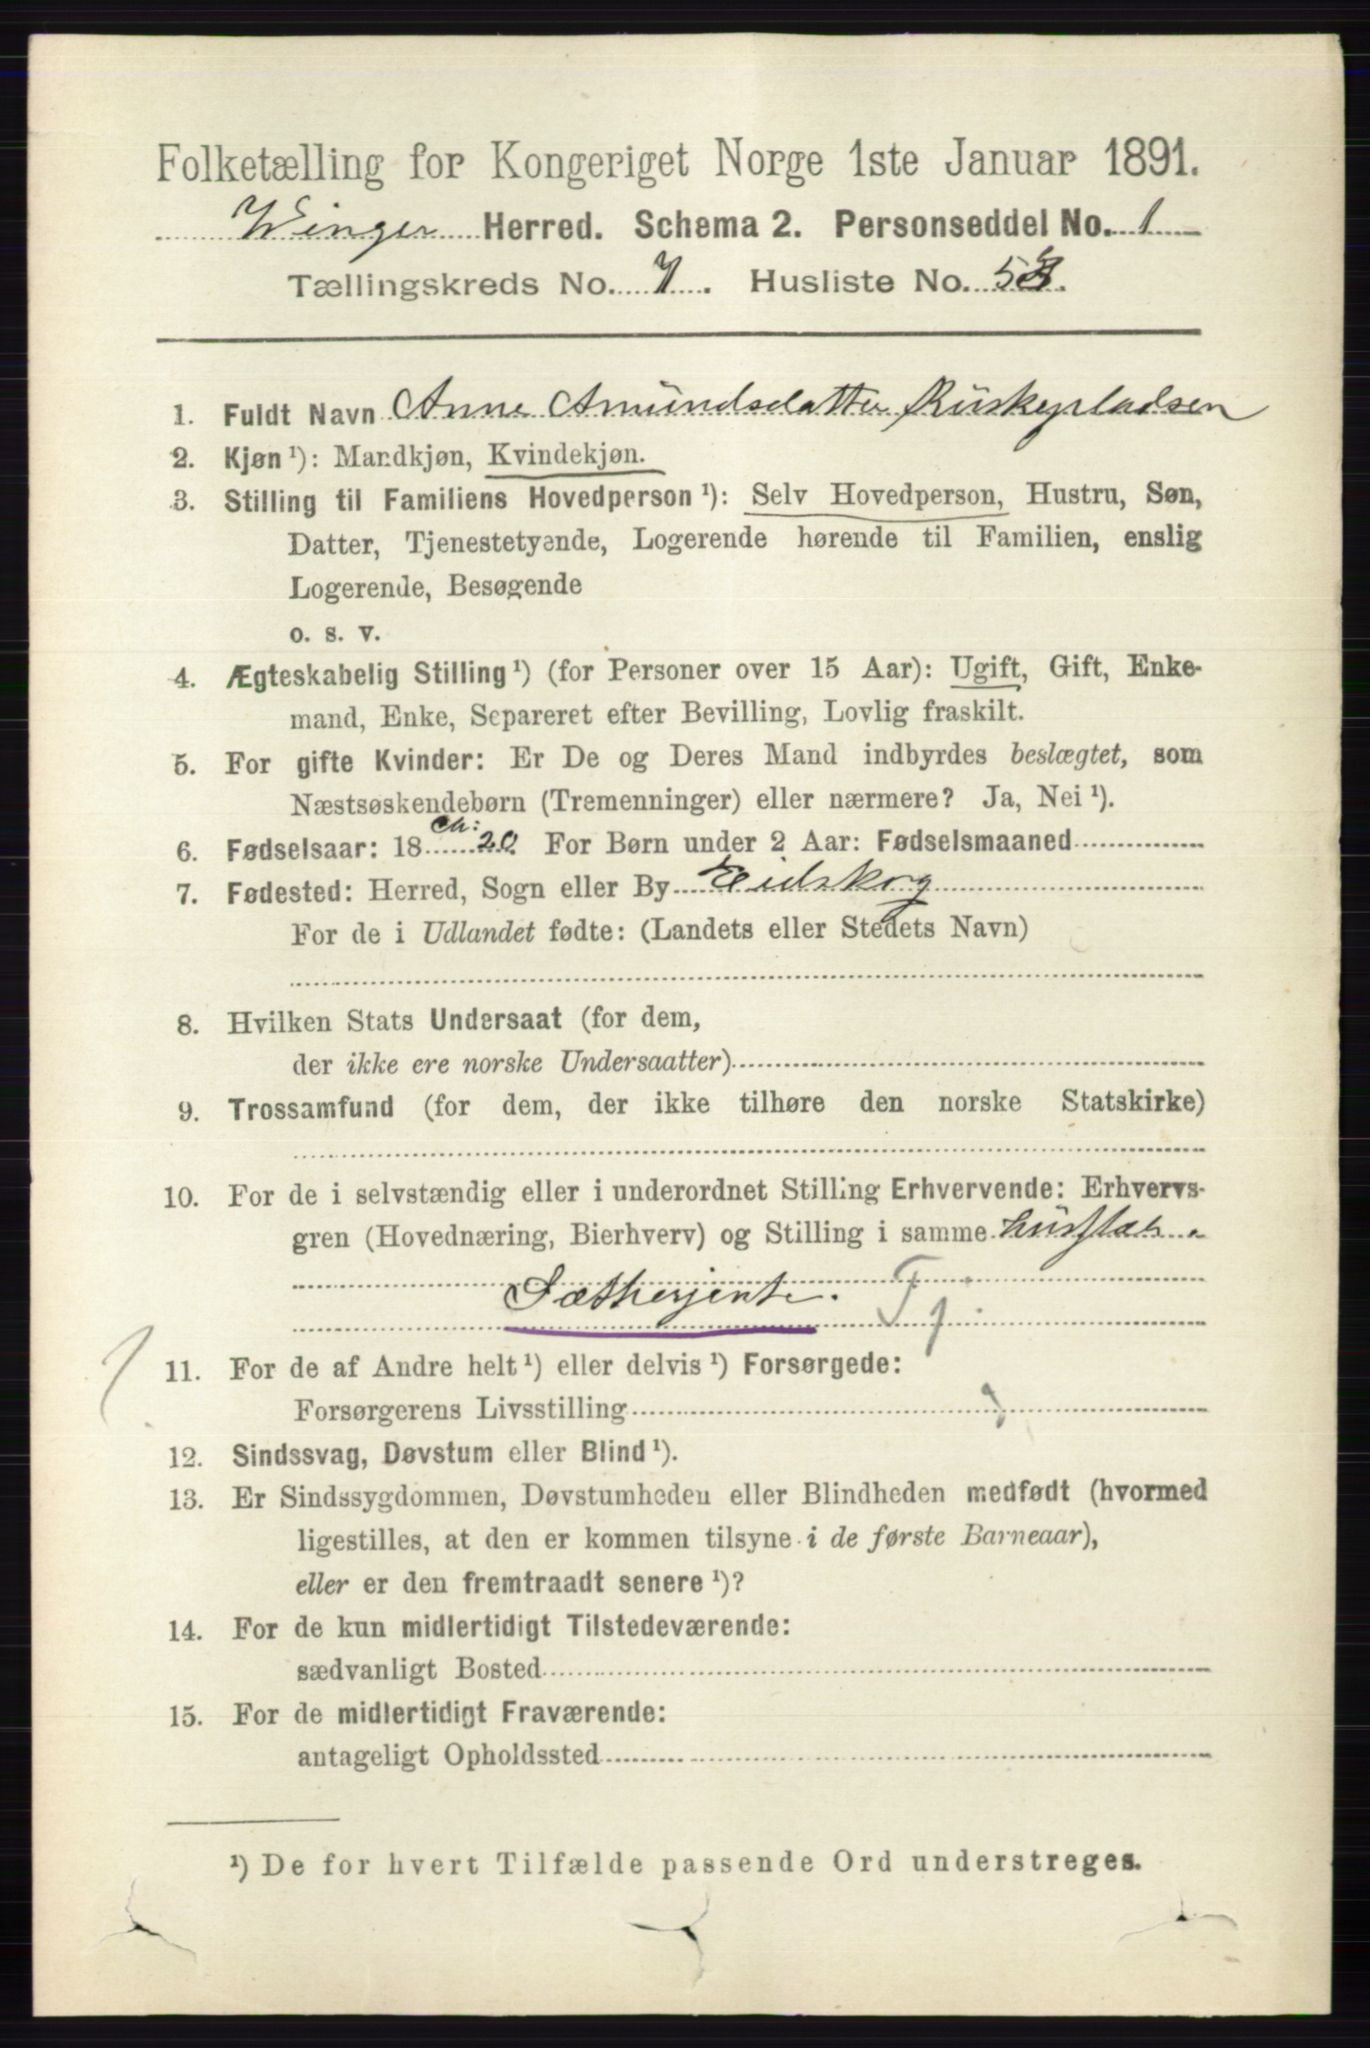 Folketælling for Kongeriget Norge 1ste Januar 1891.
Vinger Herred. Schema 2. Personseddel No. 1
Tællingskreds No. 7. Husliste No. 58.
1. Fuldt Navn Anne Amundsdatter
2. Kjøn ¹): Mandkjøn, Kvindekjøn.
3. Stilling til Familiens Hovedperson ¹): Selv Hovedperson, Hustru, Søn,
Datter, Tjenestetyende, Logerende hørende til Familien, enslig
Logerende, Besøgende
o. s. v.
4. Ægteskabelig Stilling ¹) (for Personer over 15 Aar): Ugift, Gift, Enke-
mand, Enke, Separeret efter Bevilling, Lovlig fraskilt.
5. For gifte Kvinder: Er De og Deres Mand indbyrdes beslægtet, som
Næstsøskendebørn (Tremenninger) eller nærmere? Ja, Nei ¹).
6. Fødselsaar: 18 20 For Børn under 2 Aar: Fødselsmaaned
7. Fødested: Herred, Sogn eller By Eidskog
For de i Udlandet fødte: (Landets eller Stedets Navn)
8. Hvilken Stats Undersaat (for dem,
der ikke ere norske Undersaatter)
9. Trossamfund (for dem, der ikke tilhøre den norske Statskirke)
10. For de i selvstændig eller i underordnet Stilling Erhvervende: Erhvervs-
gren (Hovednæring, Bierhverv) og Stilling i samme
Sætherjente. Tj.
11. For de af Andre helt ¹) eller delvis ¹) Forsørgede:
Forsørgerens Livsstilling
12. Sindssvag, Døvstum eller Blind ¹).
13. Er Sindssygdommen, Døvstumheden eller Blindheden medfødt (hvormed
ligestilles, at den er kommen tilsyne i de første Barneaar),
eller er den fremtraadt senere ¹)?
14. For de kun midlertidigt Tilstedeværende:
sædvanligt Bosted
15. For de midlertidigt Fraværende:
antageligt Opholdssted
¹) De for hvert Tilfælde passende Ord understreges.